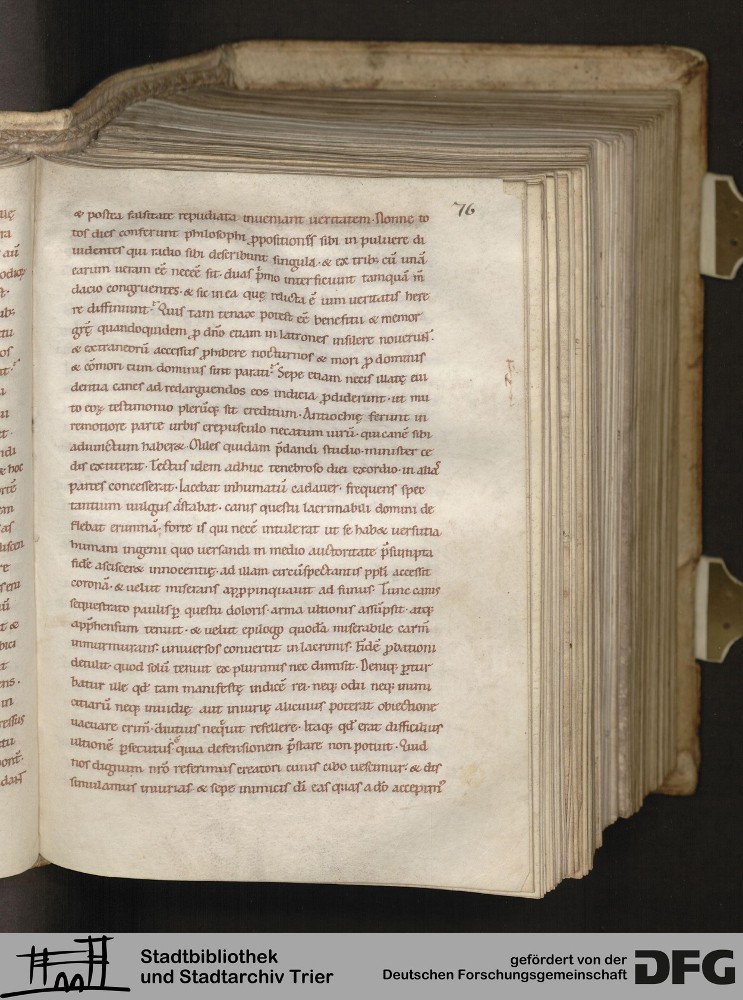 76
& postea falsitate repudiata inueniant ueritatem. Nonne to
tos dies conferunt philosophi ꝓpositionis sibi in puluere di
uidentes qui radio sibi describunt singula. & ex trib; cū unā
earum ueram eē necēe sit. duas p̄mo interficiunt tamquā m̄
dacio congruentes. & sic in ea quę relicta ē uim ueritatis here
re diffiniunt. Quis tam tenax potest eē benefitii & memor
grę̄. quandoquidem ꝓ dn̄o etiam in latrones insilere nouerun̄.
& extraneorū accessus ꝓhibere nocturnos & mori ꝓ dominis
& cōmori cum dominis sint parati. Sepe etiam necis illatę eui
dentia canes ad redarguendos eos indicia ꝓdiderunt. ut mu
to eoꝝ testimonio plerūq; sit creditum. Antiochię ferunt in
remotiore parte urbis crepusculo necatum uirū. qui canē sibi
adiunctum haber&. Miles quidam p̄dandi studio minister ce
dis extiterat. Tectus idem adhuc tenebroso diei exordio. in alias
partes concesserat. Iacebat inhumatū cadauer. frequens spec
tantium uulgus astabat. canis questu lacrimabili domini de
flebat erumnā. forte is qui necē intulerat ut se hab& uersutia
humani ingenii quo uersandi in medio auctoritate p̄sumpta
fidē asciscer& innocentię. ad illam circūspectantis ppłi accessit
coronā. & uelut miserans appropinquauit ad funus. Tunc canis
sequestrato paulisꝑ questu doloris. arma ultionis assūpsit. atq;
app̄hensum tenuit. & uelut epilogo quodā miserabile carm̄
inmurmurans. uniuersos conuertit in lacrimis. Fidē ꝓbationi
detulit. quod solū tenuit ex plurimis nec dimisit. Deniq; ꝑtur
batur ille qđ tam manifestę indicē rei. neq; odii neq; inimi
citiarū neq; inuidię. aut iniurię alicuius poterat obiectione
uacuare crim̄. diutius nequiuit refellere. Itaq; qđ erat difficilius
ultionē ꝑsecutus quia defensionem p̄stare non potuit. Quid
nos dignum nr̄o referimus creatori cuius cibo uescimur. & dis
simulamus iniurias. & sepe inimicis dī eas quas a dō accepim⁹
Stadtbibliothek
und Stadtarchiv Trier
gefördert von der
Deutschen Forschungsgemeinschaft
DFG